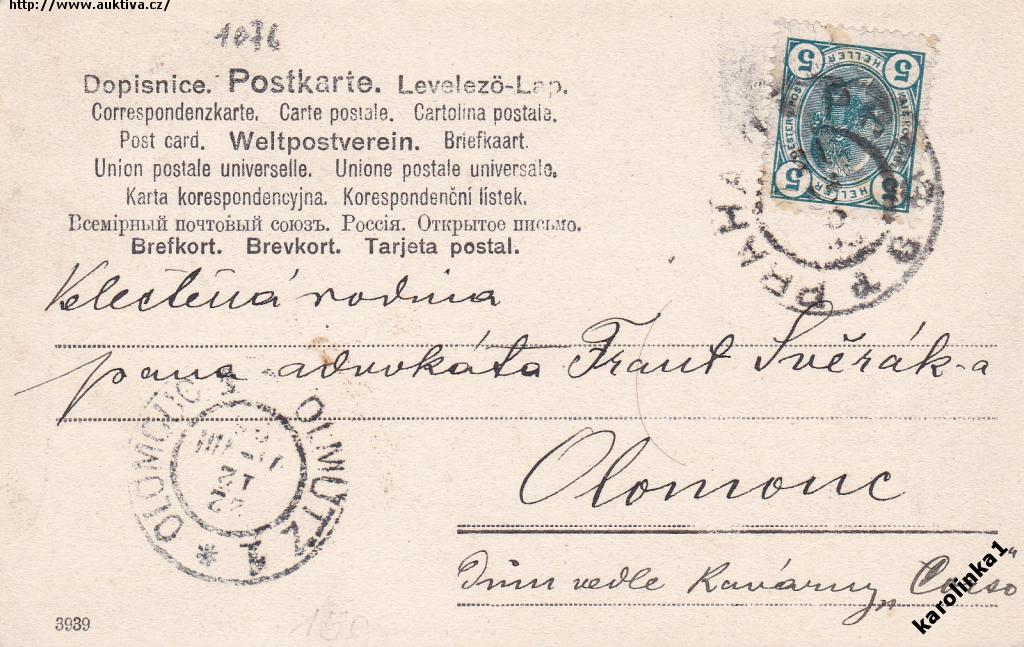 http://www.auktiva.cz/
1076
Dopisnice. Postkarte. Levelezö-Lap.
Correspondenzkarte. Carte postale. Cartolina postale.
Post card. Weltpostverein. Briefkaart.
Union postale universelle. Unione postale universale.
Karta korespondencyjna. Korespondenční lístek.
Всемірный почтовый союзъ. Россія. Открытое письмо.
Brefkort. Brevkort. Tarjeta postal.
5 HELLER 5
5 HELLER 5
PRAHA
Velectěná rodina
pana advokáta Frant Svěrák-a
OLOMOUC 1 OLMÜTZ 1
Olomouc
Dům vedle Kavárny „Corso"
karolinka1
3939